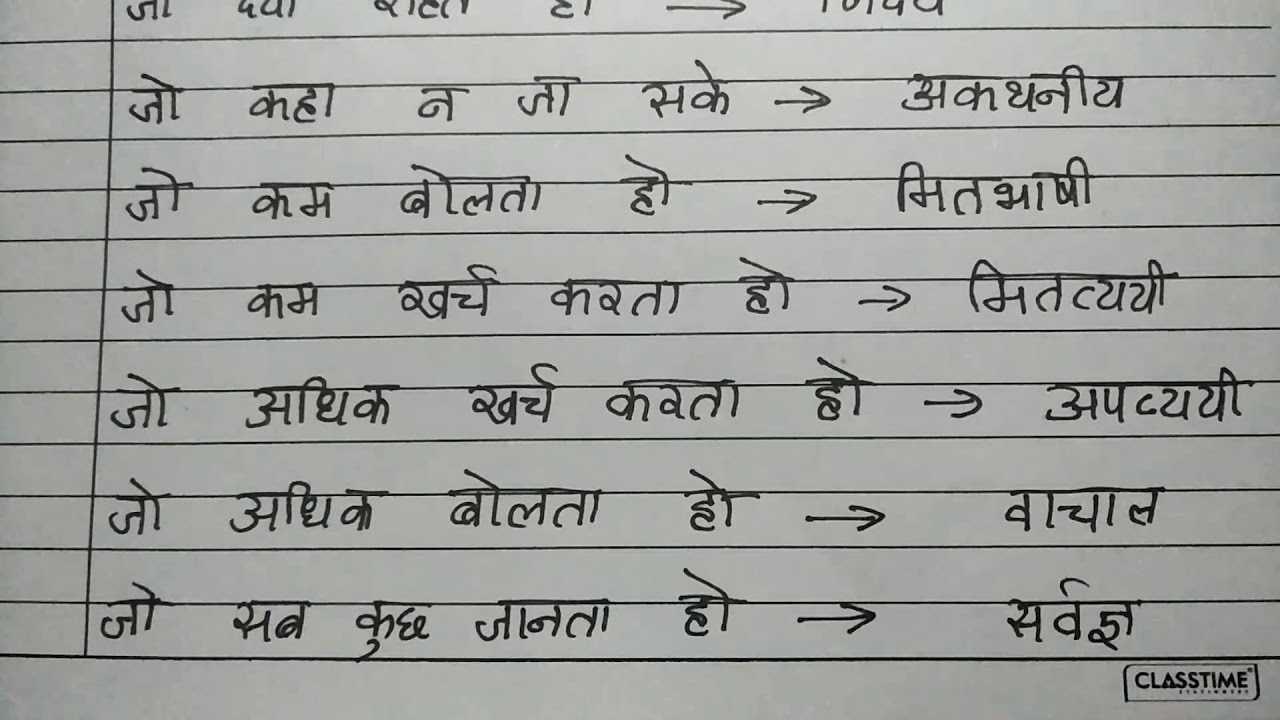 जो दया रहित हो → निर्दय
जो कहा न जा सके → अकथनीय
जो कम बोलता हो → मितभाषी
जो कम खर्च करता हो → मितव्ययी
जो अधिक खर्च करता हो → अपव्ययी
जो अधिक बोलता हो → वाचाल
जो सब कुछ जानता हो → सर्वज्ञ
CLASSTIME